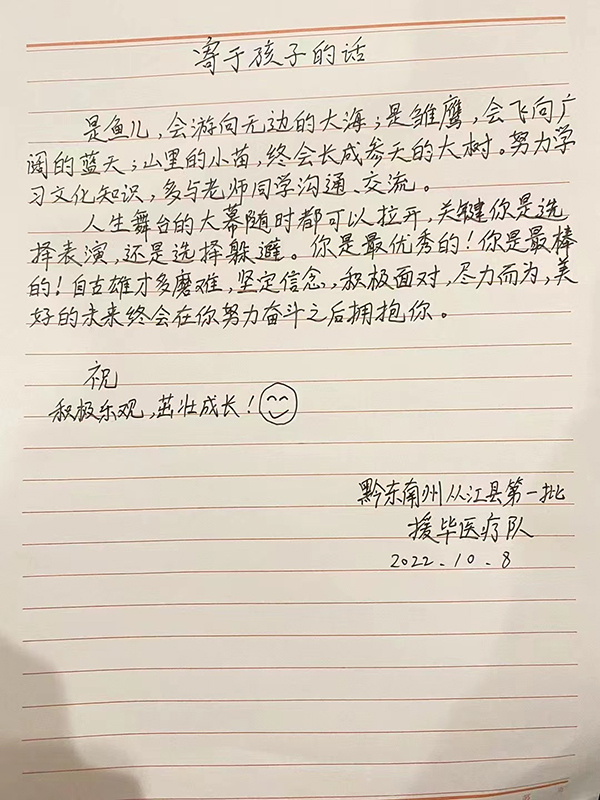 寄于孩子的话
是鱼儿，会游向无边的大海；是雏鹰，会飞向广
阔的蓝天；山里的小苗，终会长成参天的大树。努力学
习文化知识，多与老师同学沟通、交流。
人生舞台的大幕随时都可以拉开，关键你是选
择表演，还是选择躲避。你是最优秀的！你是最棒
的！自古雄才多磨难，坚定信念，积极面对，尽力而为，美
好的未来终会在你努力奋斗之后拥抱你。
祝
积极乐观，茁壮成长！
黔东南州从江县第一批
援毕医疗队
2022.10.8